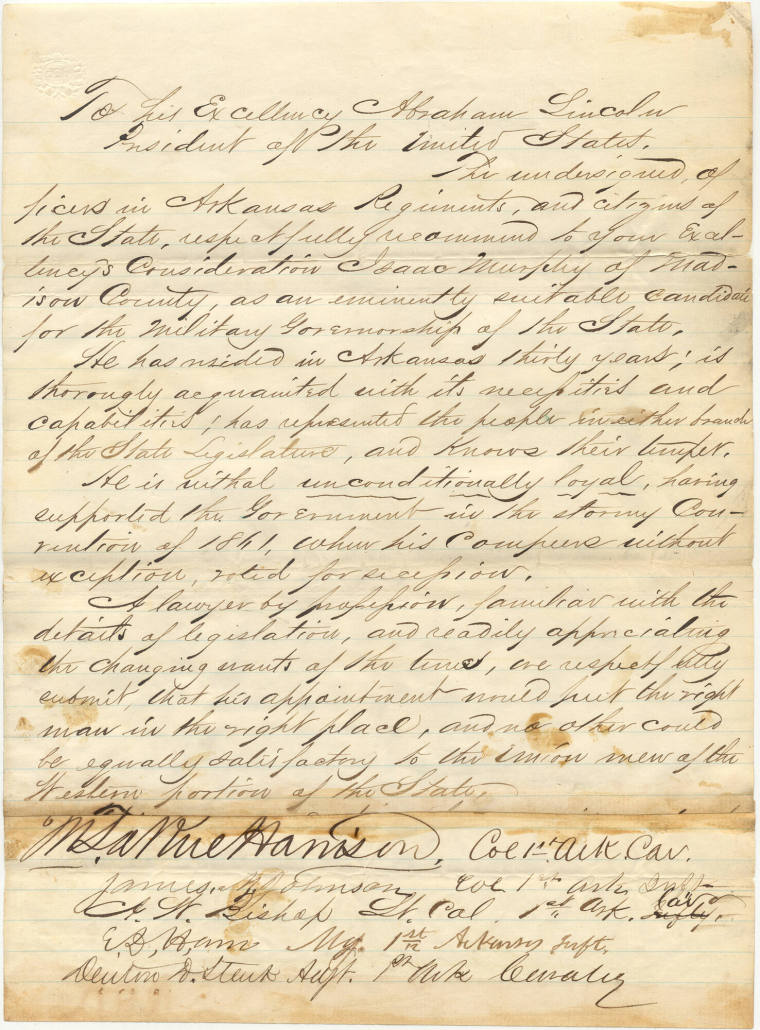 To his Excellency Abraham Lincoln
President of the United States.
The undersigned, of
ficers in Arkansas Regiments, and citizens of
the State, respectfully recommend to your Excel-
lency's Consideration Isaac Murphy of Mad-
ison County, as an eminently suitable candidate
for the Military Governorship of the State.
He has resided in Arkansas thirty years; is
thorougly acquainted with its necessities and
capabilities; has represented the people in either branch
of the State Legislature, and Knows their temper.
He is withal unconditionally loyal, having
supported the Government in the stormy Con-
vention of 1861, when his Compeers without
exception, voted for secession.
A lawyer by profession, familiar with the
details of legislation, and readily appreciating
the changing wants of the times, we respectfully
submit, that his appointment would put the right
man in the right place, and no other could
be equally satisfactory to the Union men of the
Western portion of the State.
M. LaRue Harrison, Col 1st Ark Cav.
James M Johnson Col 1st Ark Inft
A. W. Bishop Lt. Col. 1st Ark. Infty Cav.
E. D. Ham Maj. 1st Arkansas Inft.
Denton D. Stark Adjt. 1st Ark Cavalry